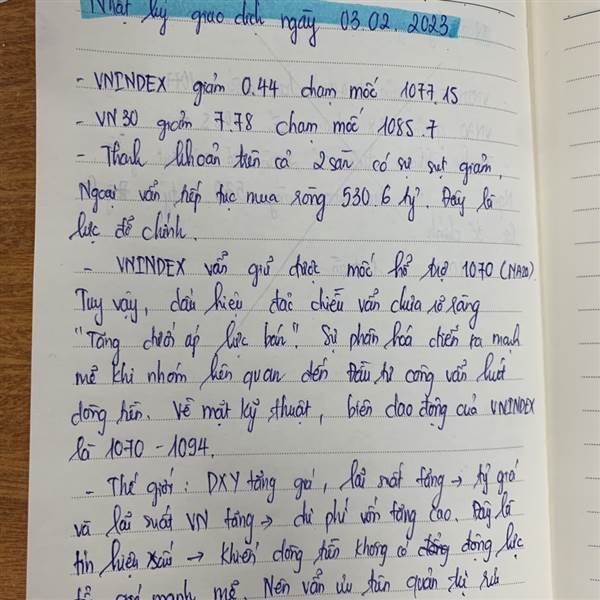 Nhật ký giao dịch ngày 03.02.2023
- VNINDEX giảm 0.44 chạm mốc 1077.15
- VN30 giảm 7.78 chạm mốc 1085.7
- Thanh khoản trên cả 2 sàn có sự sụt giảm.
Ngoại vẫn tiếp tục mua ròng 530.6 tỷ. Đây là
lực đỡ chính.
- VNINDEX vẫn giữ được mốc hỗ trợ 1070 (MA20).
Tuy vậy, dấu hiệu đảo chiều vẫn chưa rõ ràng
"Tăng dưới áp lực bán". Sự phân hoá diễn ra mạnh
mẽ khi nhóm liên quan đến Đầu tư công vẫn hút
dòng tiền. Về mặt kỹ thuật, biên dao động của VNINDEX
là 1070 - 1094.
- Thế giới: DXY tăng giá, lãi suất tăng → tỷ giá
và lãi suất VN tăng → chi phí vốn tăng cao. Đây là
tín hiệu xấu → khiến dòng tiền không có động lực
mạnh mẽ. Nên vẫn ưu tiên quản trị rủi